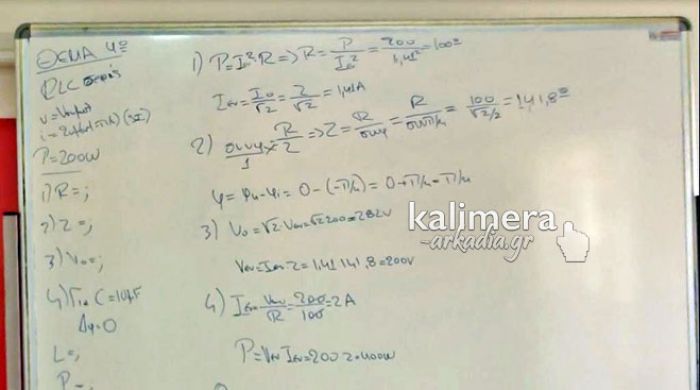 ΘΕΜΑ 4º
RLC σειράς
P=200W
1) R=;
2) Z=;
3) V₀=;
4) Για C=10μF
Δφ=0
L=;
P=;
1) P=Iεν²·R=>R=P/Iεν²=200/1,41²=100Ω
Iεν=I₀/√2=2/√2=1,41A
2) συνφ/1=R/Z=>Z=R/συνφ=R/συνπ/4=100/√2/2=141,8Ω
φ=φu-φi=0-(-π/4)=0+π/4=π/4
3) V₀=√2Vεν=√2 200=282V
Vεν=Iεν·Z=1,41·141,8=200V
4) Iεν=Vεν/R=200/100=2A
P=Vεν Iεν=200·2=400W
kalimera
-arkadia.gr